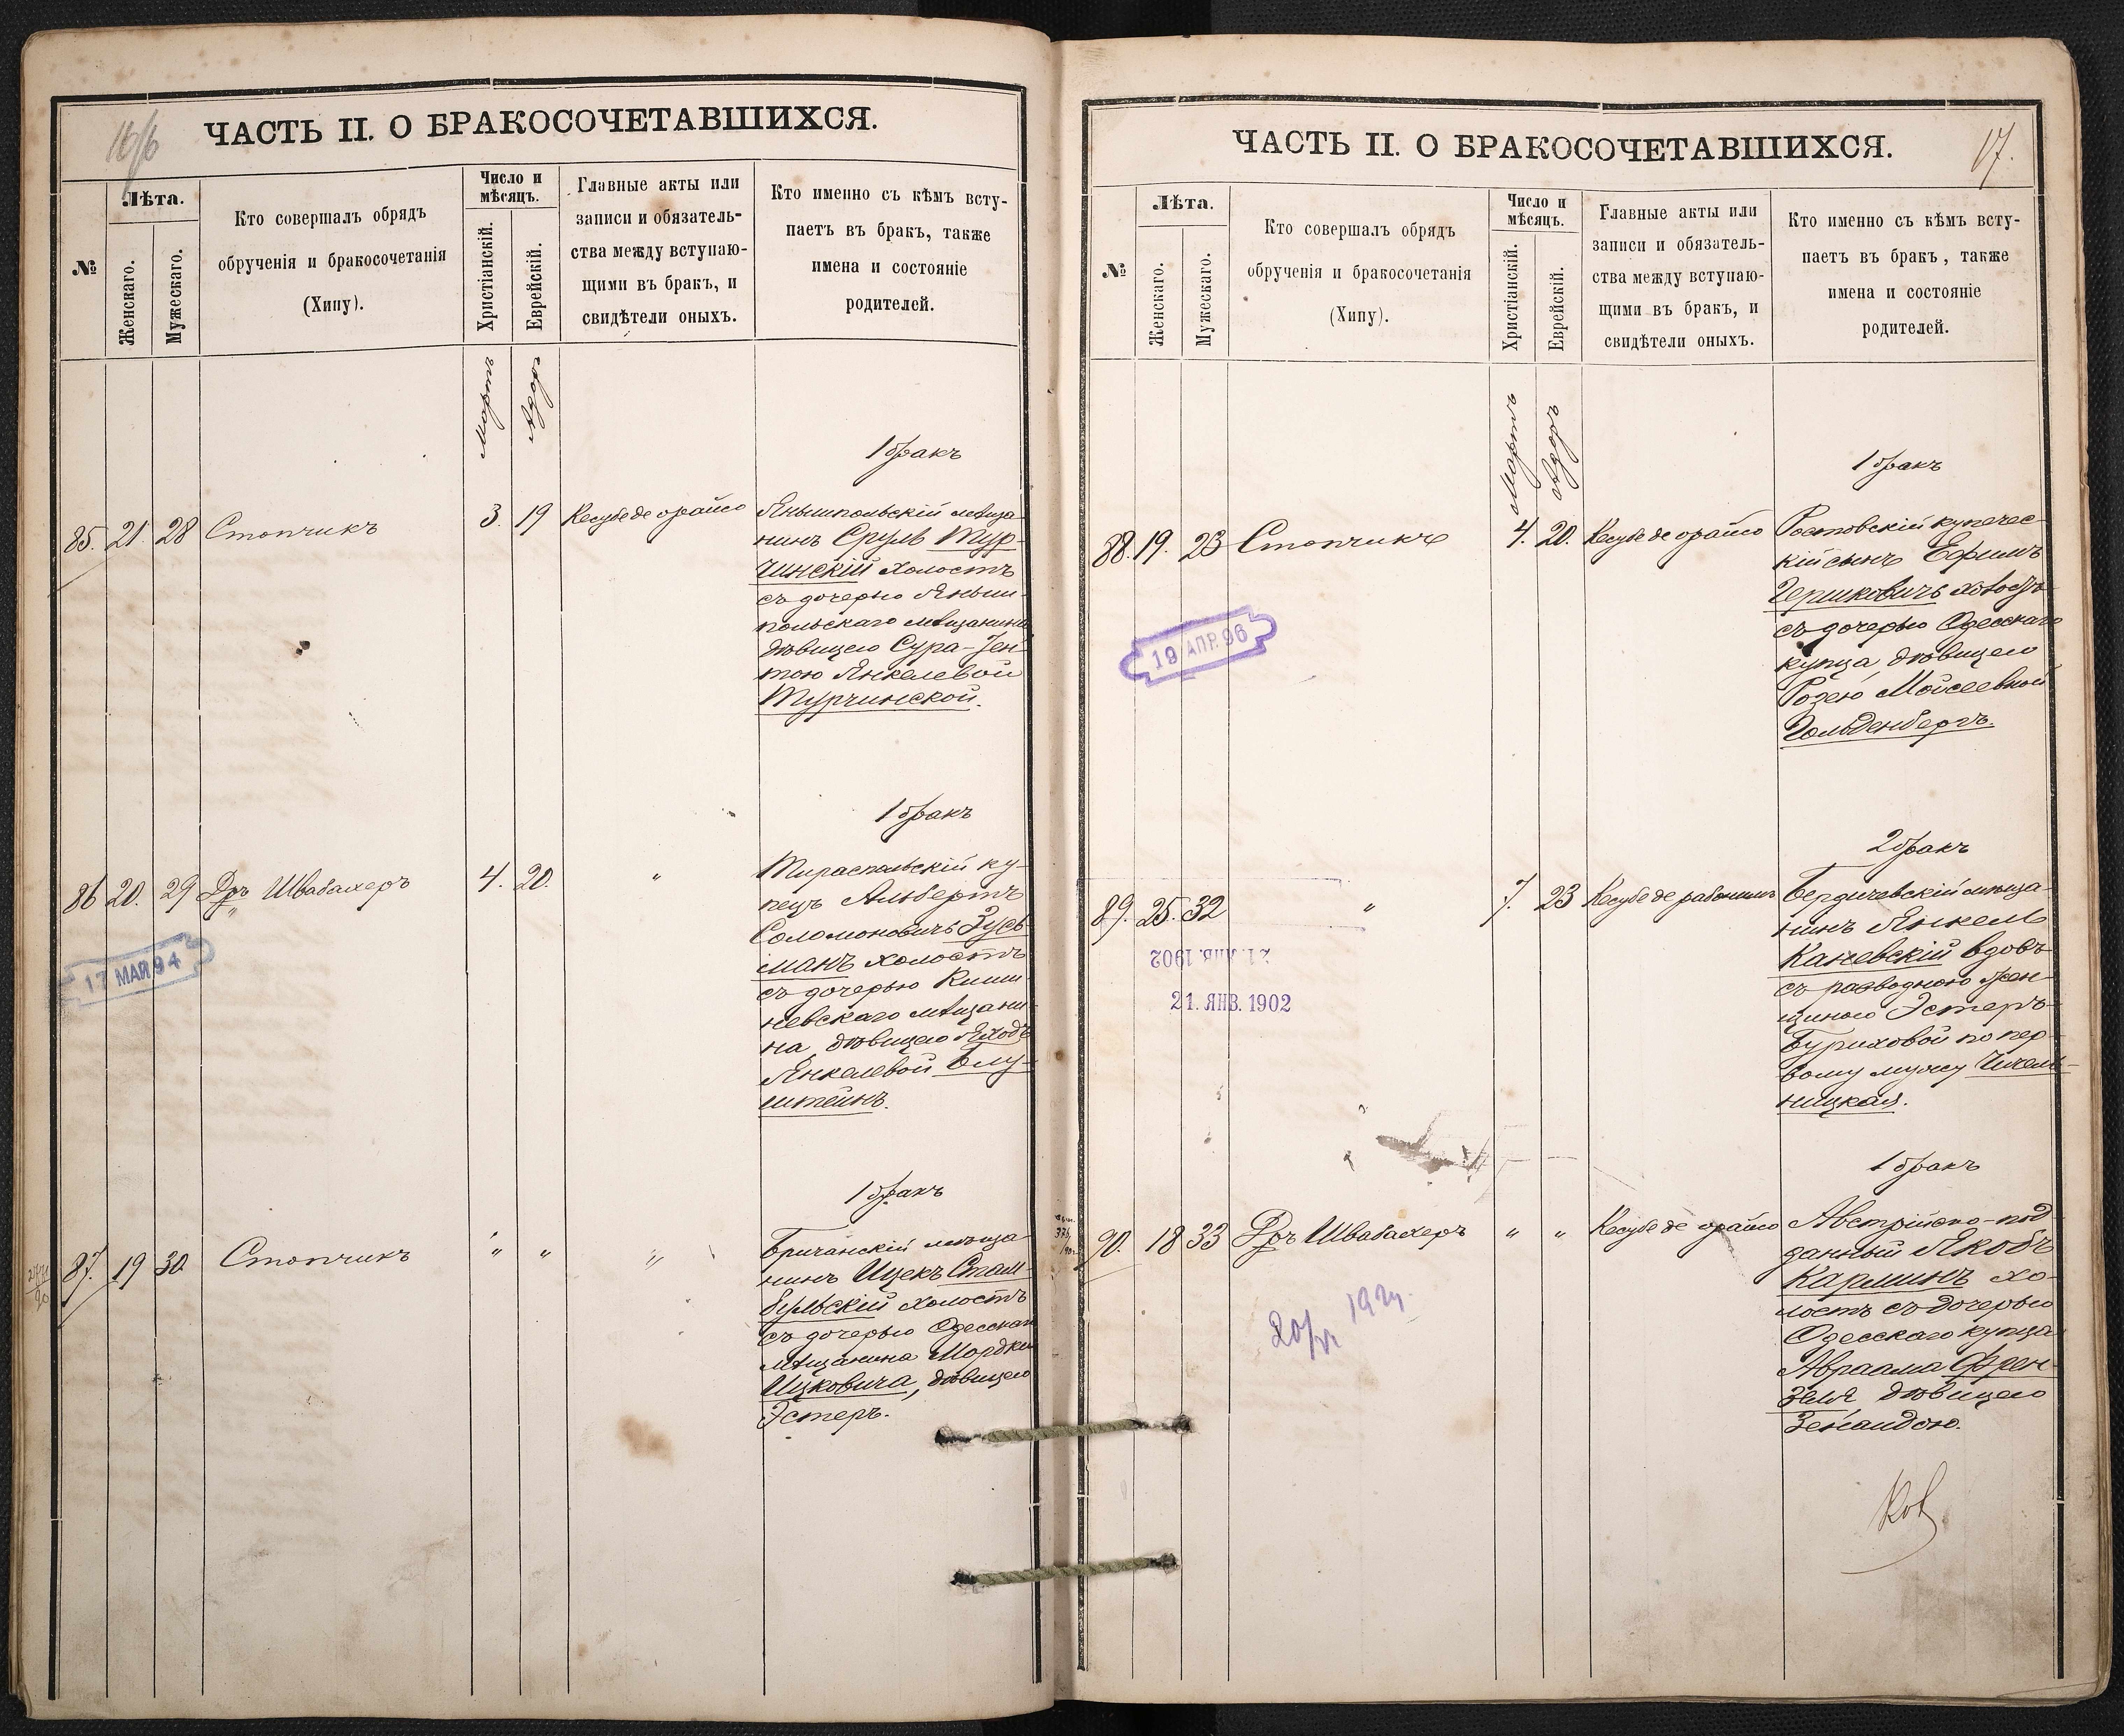 16/б
ЧАСТЬ II. О БРАКОСОЧЕТАВШИХСЯ.
№
Лѣта.
Женскаго.
Мужескаго.
Кто совершалъ обрядъ
обрученія и бракосочетанія
(Хипу).
Число и
мѣсяцъ.
Христіанскій.
Еврейскій.
Главные акты или
записи и обязатель-
ства между вступаю-
щими въ бракъ, и
свидѣтели оныхъ.
Кто именно съ кѣмъ всту-
паетъ въ бракъ, также
имена и состояніе
родителей.
Мартъ
Адаръ
1 бракъ
85. 21. 28 Стопчикъ 3. 19 Кесубе де орайсо Янышпольскій мѣща
нинъ Сруль Тур-
чинскій холостъ
съ дочерью Яныш-
польскаго мѣщанина
дѣвицею Сура-Іен
тою Янкелевой
Турчинской.
1 бракъ
86 20. 29 Дръ Швабахеръ 4. 20. " Тираспольскій ку-
пецъ Альбертъ
Соломоновичъ Зусь-
манъ холостъ
съ дочерью Киши-
невскаго мѣщани-
на, дѣвицею
Янкелевой Блу-
штейнъ.
17 МАЯ 94
1 бракъ
87. 19 30. Стопчикъ " " " Бричанскій мѣща
нинъ Ицекъ Стам-
бульскій холостъ
съ дочерью Одесскаго
мѣщанина Мордки
Ицковича, дѣвицею
Эстеръ.
17.
ЧАСТЬ II. О БРАКОСОЧЕТАВШИХСЯ.
№
Лѣта.
Женскаго.
Мужескаго.
Кто совершалъ обрядъ
обрученія и бракосочетанія
(Хипу).
Число и
мѣсяцъ.
Христіанскій.
Еврейскій.
Главные акты или
записи и обязатель-
ства между вступаю-
щими въ бракъ, и
свидѣтели оныхъ.
Кто именно съ кѣмъ всту-
паетъ въ бракъ, также
имена и состояніе
родителей.
Мартъ
Адаръ
1 бракъ
88. 19. 23 Стопчикъ 4. 20. Кесубе де орайсо Ростовскій купечес-
кій сынъ Ефимъ
Гершковичъ холостъ
съ дочерью Одесскаго
купца, дѣвицею
Розею Мойсеевной
Гольденбергъ.
19 АПР. 96
2 бракъ
89. 25. 32 " 7. 23 Кесубе де рабонимъ Бердичевскій мѣща-
нинъ Янкель
Каневскій вдовъ
съ разводною жен-
щиною Эстеръ
Буриховой по пер-
вому мужу
ницкая.
21. ЯНВ. 1902
21. ЯНВ. 1902
1 бракъ
90. 18 33 Дръ Швабахеръ " " Кесубе де орайсо Австрійско-под
данный Якобъ
Карминъ хо-
лостъ съ дочерью
Одесскаго купца
Авраама Френ-
зеля дѣвицею
Зенаидою.